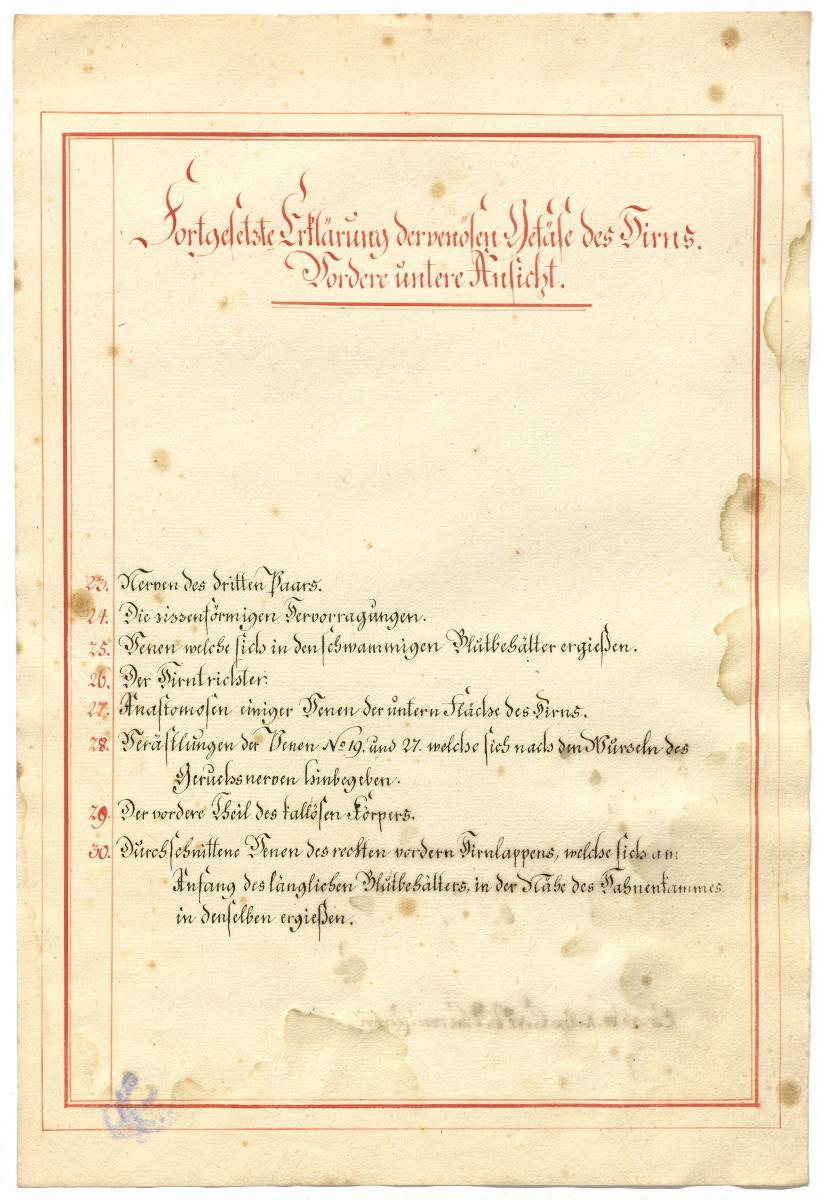 Fortgesetzte Erklärung der venösen Gefäse des Hirns.
Vordere untere Ansicht.
23. Nerven des dritten Paars.
24. Die zizzenförmigen Hervorragungen.
25. Venen welche sich in den schwammigen Blutbehälter ergießen.
26. Der Hirntrichter.
27. Anastomosen einiger Venen der untern Fläche des Hirns.
28. Verästlungen der Venen No 19. und 27. welche sich nach den Wurzeln des
Geruchsnerven hinbegeben.
29. Der vordere Theil des kallösen Körpers.
30. Durchschnittene Venen des rechten vordern Hirnlappens, welche sich am
Anfang des länglichen Blutbehälters, in der Nähe des Hahnenkammes
in denselben ergießen.